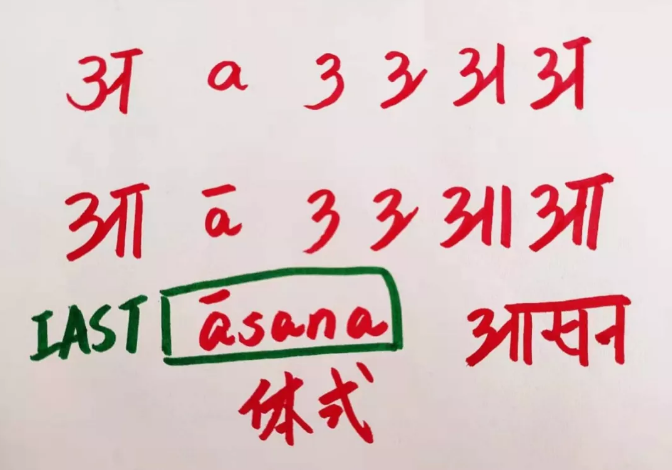 अ a ३ ३ अ अ
आ ā ३ ३ आ आ
IAST āsana आसन
体式